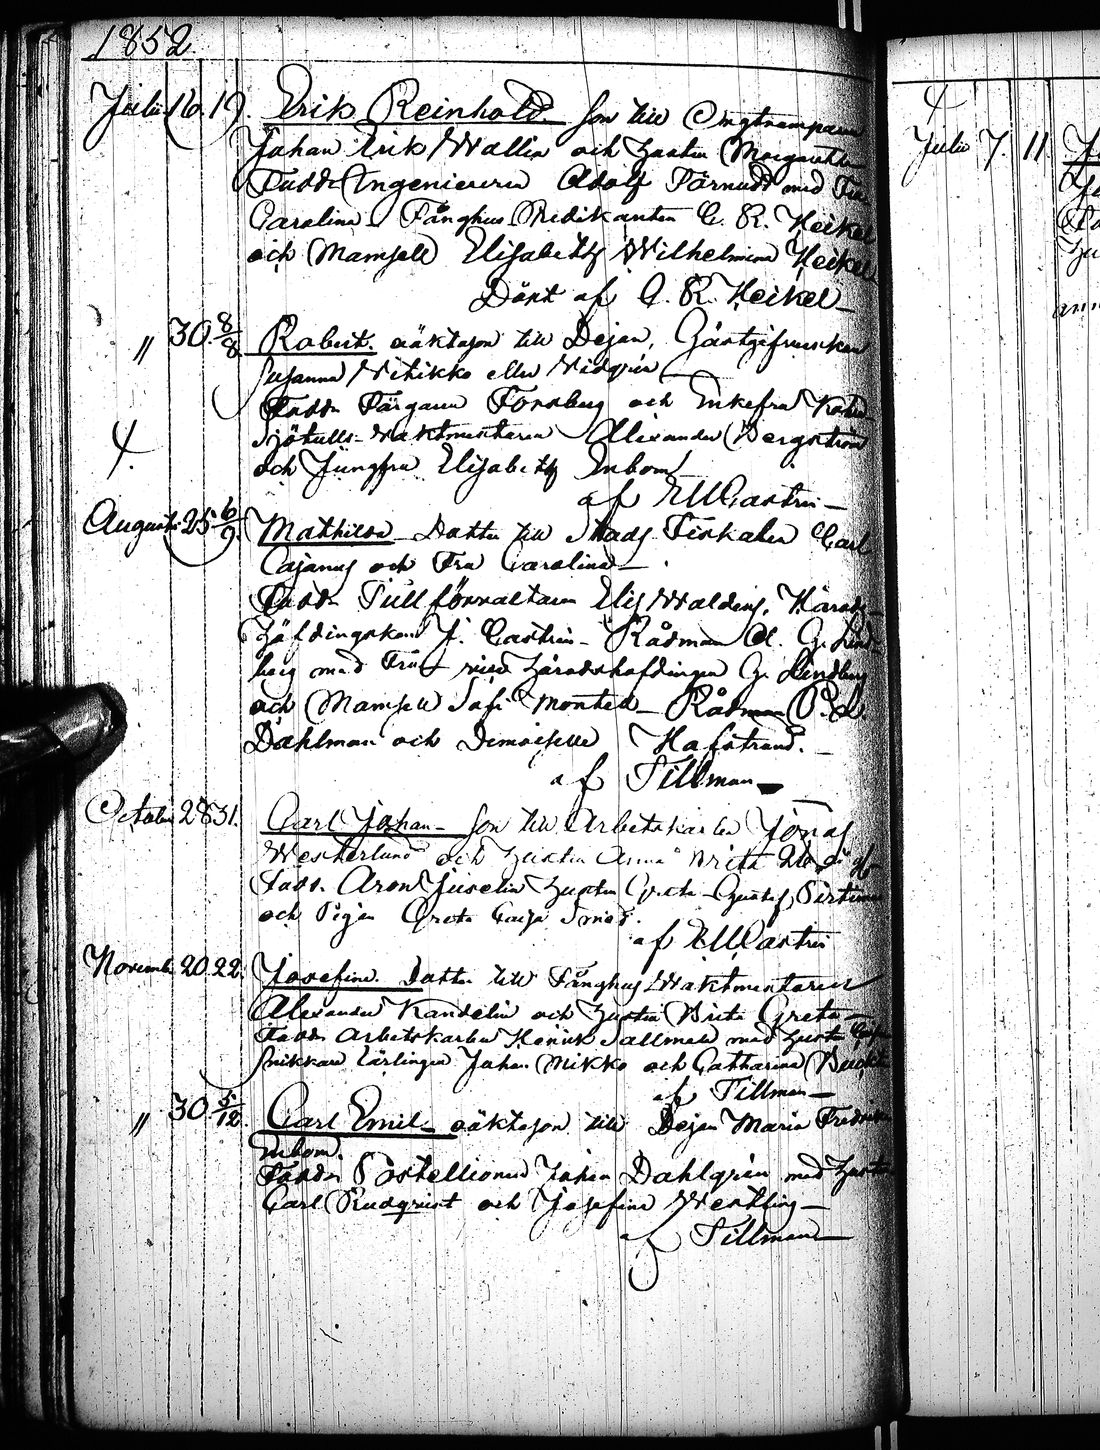 1852.
Julii 16. 19. Erik Reinhold Son till
Johan Erik Wallin och hustru Margaretha
Fadd. Ingenieuren Adolf Färnudd med Fru
Carolina Fånghus Predikanten C. R. Heikel
och Mamsell Elisabeth Wilhelmina Heikel
Döpt af C. R. Heikel
" 30. 8/8 Robert. oäkta son till Pejan, Gästgifverskan
Susanna Niikko eller Nidgrén
Fadd. Färgaren Forsberg och Enkefru
Sjötulls-Waktmästaren Alexander Bergström
och Jungfru Elisabeth Enbom
af EMCastrén
Augusti 25 6/9. Mathilda Dotter till Stads Fiskalen Carl
Cajanus och Fru Carolina
Fadd. Tullförvaltaren Elis Walding, Härads-
Höfdingskan J. Castrén - Rådman A. G. Lind-
berg med Fru vice häradshöfdingen G. Lindberg
och Mamsell Sofi Montell Rådman P. L.
Dahlman och Demoiselle Hafstrand.
af Tillman
October 28 31. Carl Johan Son till Arbetskarlen Jonas
Westerlund och hustru Anna Brita 26
Fadd. Aron Juselin hustru Greta Gustaf
och Pigan Greta Caisa
af EMCastrén
Novemb. 20. 22. Josefina. Dotter till Fånghus Waktmästaren
Alexander Kandelin och hustru Brita Greta
Fadd. Arbetskarlen Henrik Sallmén med hustru
Snikkare Lärlingen Johan Mikko och Catharina
af Tillman
" 30. 5/12. Carl Emil oäkta son till Pejan Maria Fredrika
Enbom.
Fadd. Postillionen Johan Dahlgrén med hustru
Carl Rudqvist och Josefina Westling
af Tillman
Julii 7. 11.